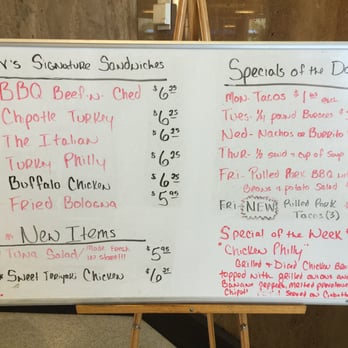 Signature Sandwiches
BBQ Beef-n-Ched $6.25
Chipotle Turkey $6.25
The Italian $6.25
Turkey Philly $6.25
Buffalo Chicken $6.25
Fried Bologna $5.95
New Items
Tuna Salad / made fresh in house!!! $5.95
* Sweet Teriyaki Chicken $6.25
Specials of the
Mon-Tacos $1
Tues- 1/2 pound Burgers
Wed-Nachos or Burrito
Thur- 1/2 sand + cup of Soup
Fri- Pulled Pork BBQ w/
Beans + potato Salad
Fri- NEW Pulled Pork
Tacos (3)
Special of the Week
"Chicken Philly"
Grilled + Diced Chicken
topped with grilled onions and
Banana peppers, melted provolone